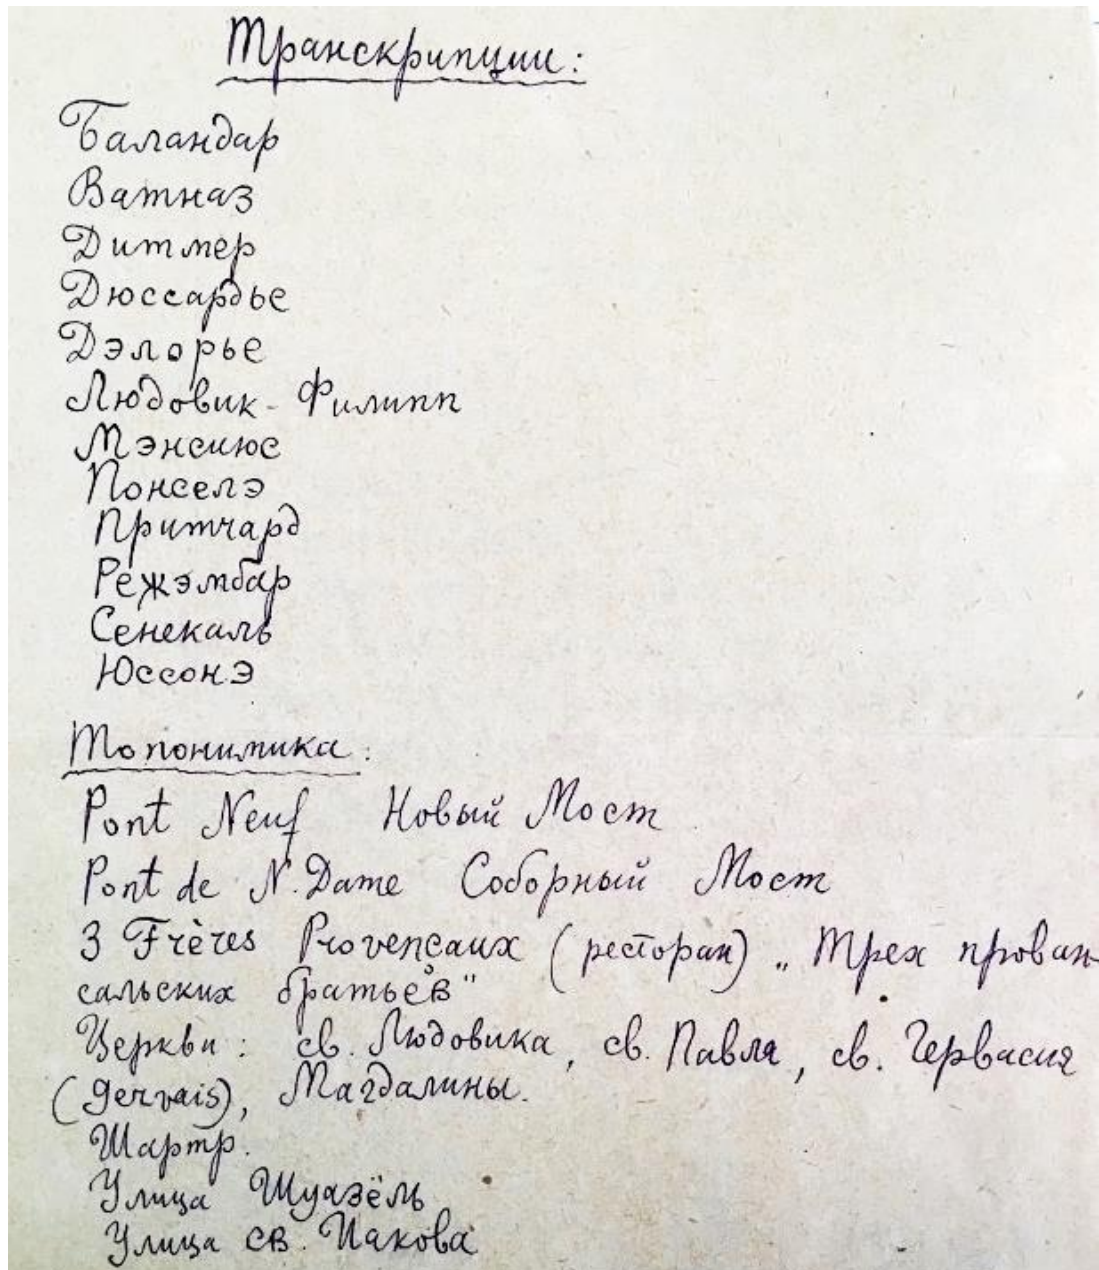 Транскрипции:
Баландар
Ватназ
Дитмер
Дюссардье
Дэлорье
Людовик-Филипп
Мэнсиюс
Понселэ
Притчард
Режэмбар
Сенекаль
Юссонэ
Топонимика:
Pont Neuf Новый Мост
Pont de N. Dame Соборный Мост
3 Frères Provencaux (ресторан) „Трех прован-
сальских братьев"
Церкви: св. Людовика, св. Павла, св. Гервасия
(Gervais), Магдалины.
Шартр.
Улица Шуазёль
Улица св. Иакова